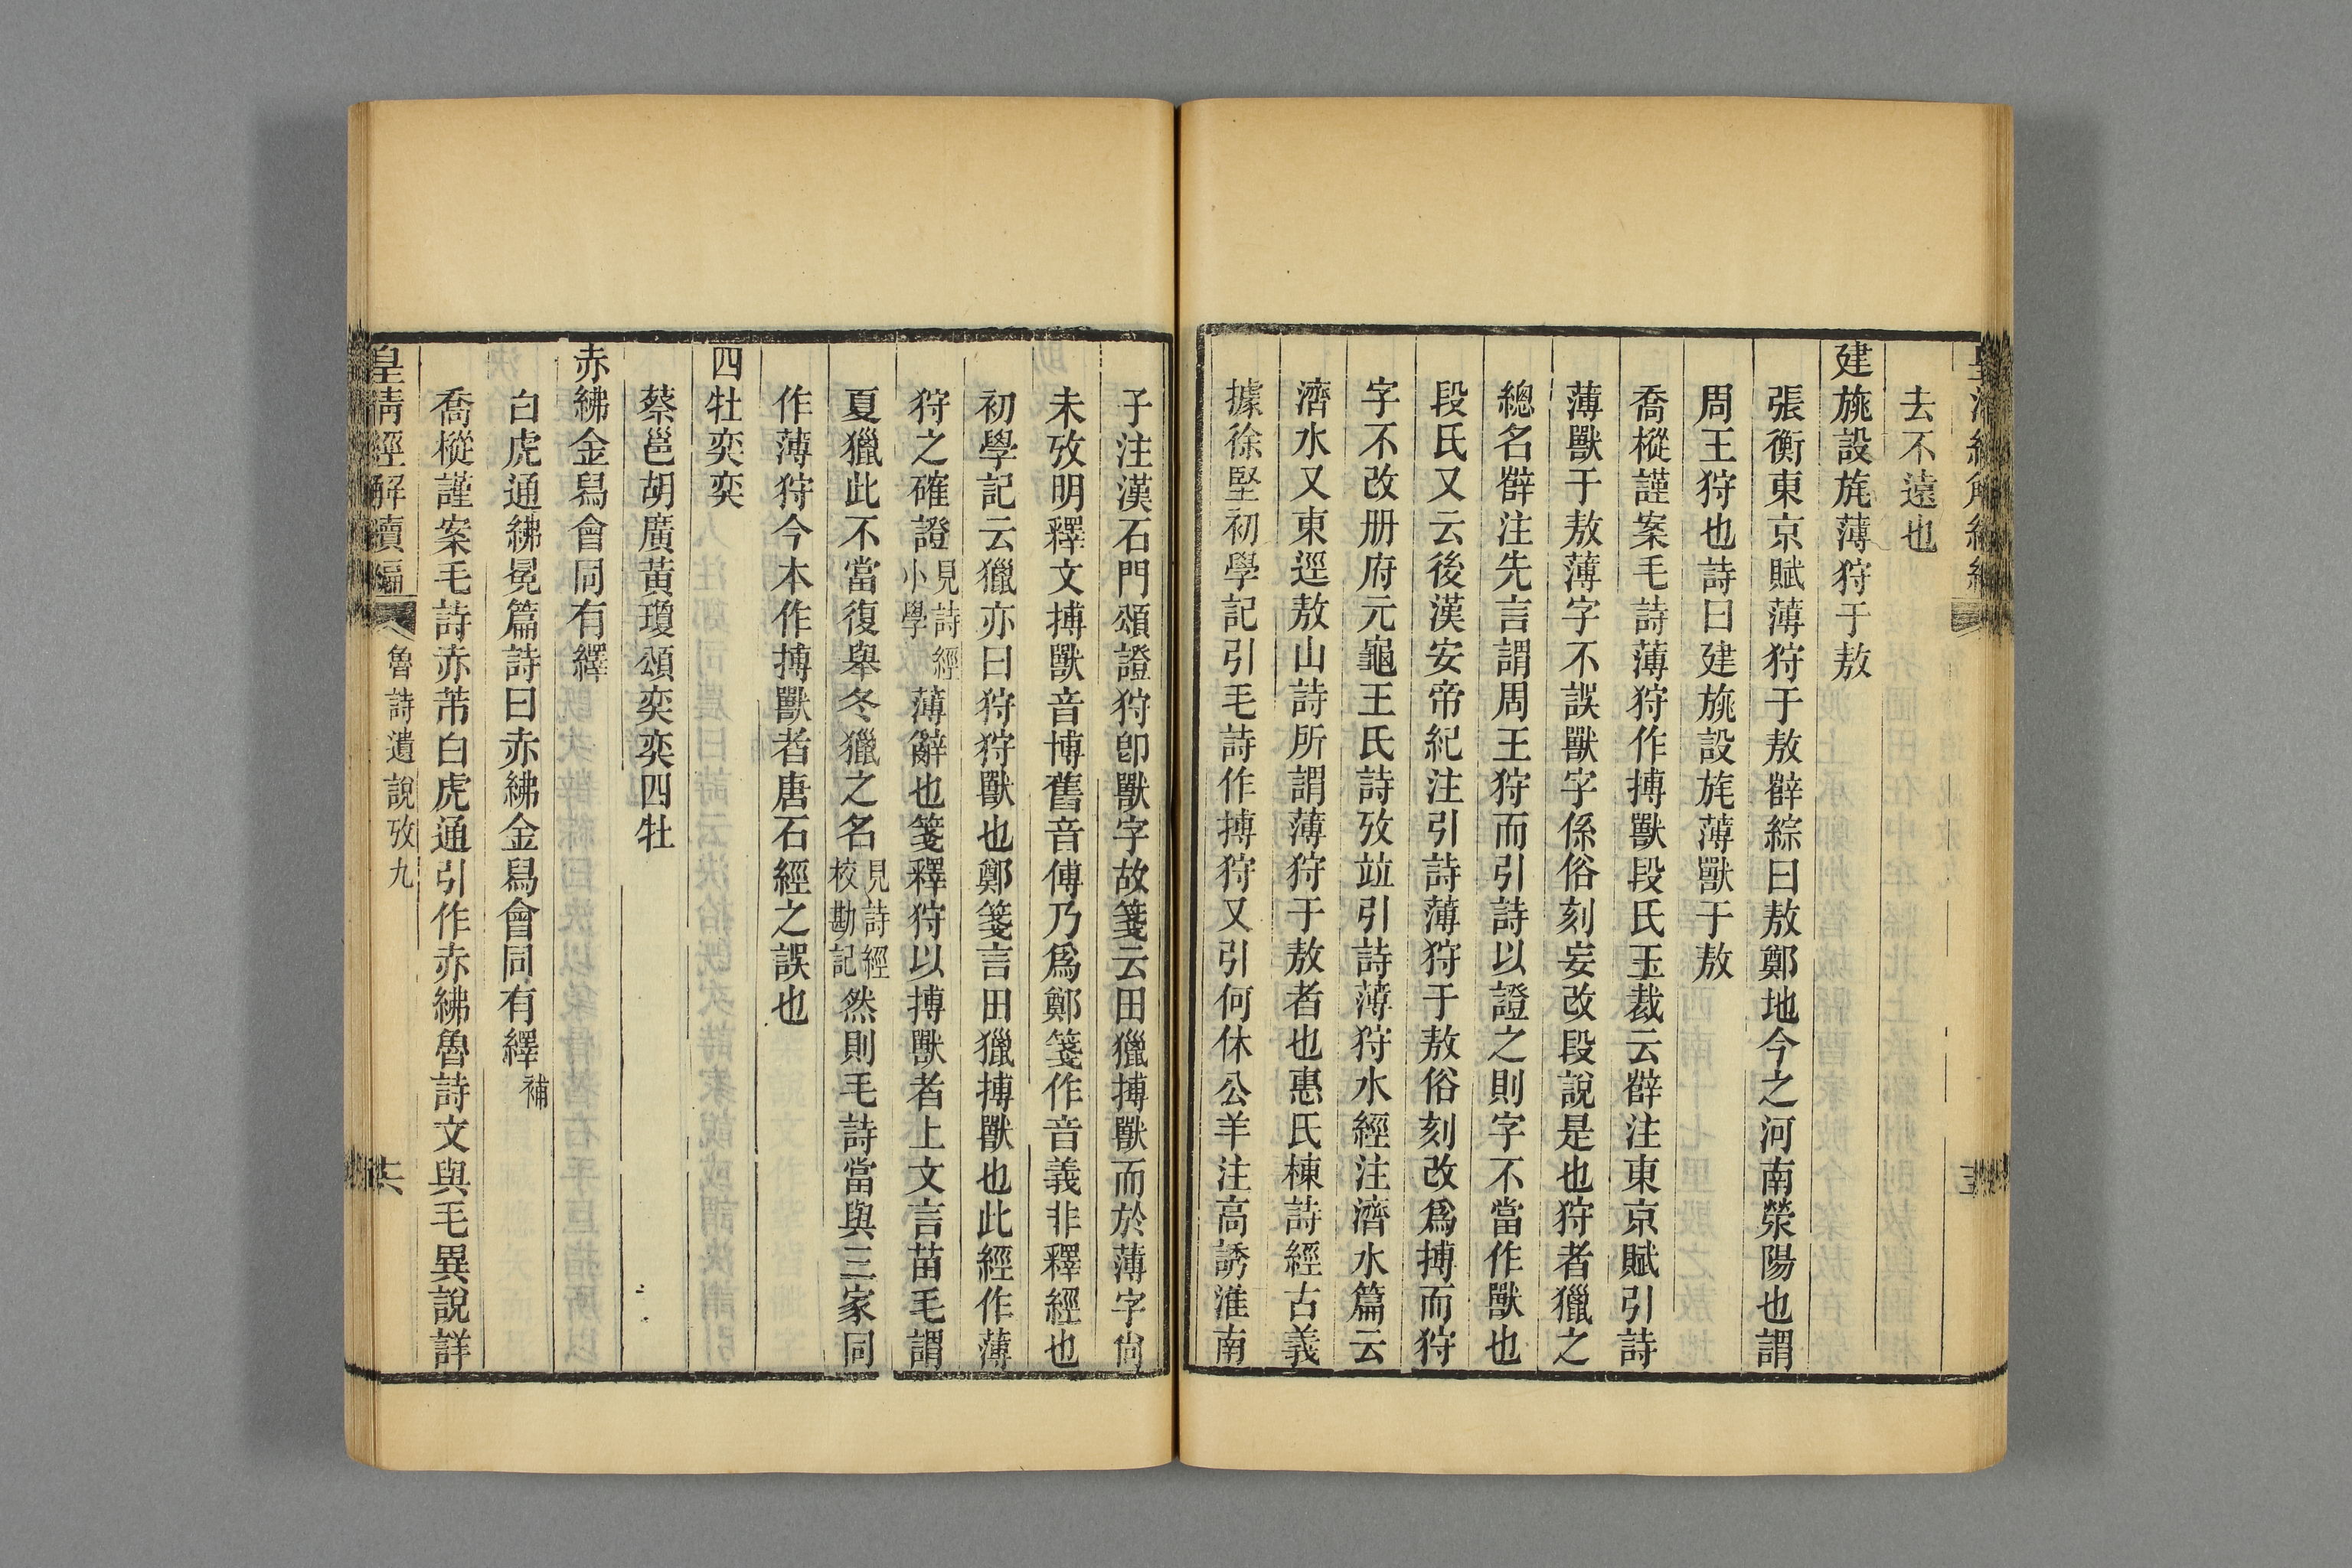 去不遠也
建旐設旄薄狩于敖
張衡東京賦薄狩于敖薛綜曰敖鄭地今之河南滎陽也謂
周王狩也詩曰建旐設旄薄獸于敖
喬樅謹案毛詩薄狩作搏獸段氏玉裁云薛注東京賦引詩
薄獸于敖薄字不誤獸字係俗刻妄改段說是也狩者獵之
總名薛注先言謂周王狩而引詩以證之則字不當作獸也
段氏又云後漢安帝紀注引詩薄狩于敖俗刻改爲搏而狩
字不改册府元龜王氏詩攷竝引詩薄狩水經注濟水篇云
濟水又東逕敖山詩所謂薄狩于敖者也惠氏棟詩經古義
據徐堅初學記引毛詩作搏狩又引何休公羊注高誘淮南
子注漢石門頌證狩卽獸字故箋云田獵搏獸而於薄字尙
未攷明釋文搏獸音博舊音傅乃爲鄭箋作音義非釋經也
初學記云獵亦曰狩狩獸也鄭箋言田獵搏獸也此經作薄
狩之確證見詩經小學薄辭也箋釋狩以搏獸者上文言苗毛謂
夏獵此不當復舉冬獵之名見詩經校勘記然則毛詩當與三家同
作薄狩今本作搏獸者唐石經之誤也
四牡奕奕
蔡邕胡廣黃瓊頌奕奕四牡
赤紼金舄會同有繹
白虎通紼冕篇詩曰赤紼金舄會同有繹補
喬樅謹案毛詩赤芾白虎通引作赤紼魯詩文與毛異說詳
皇淸經解續編 魯詩遺說攷九 六